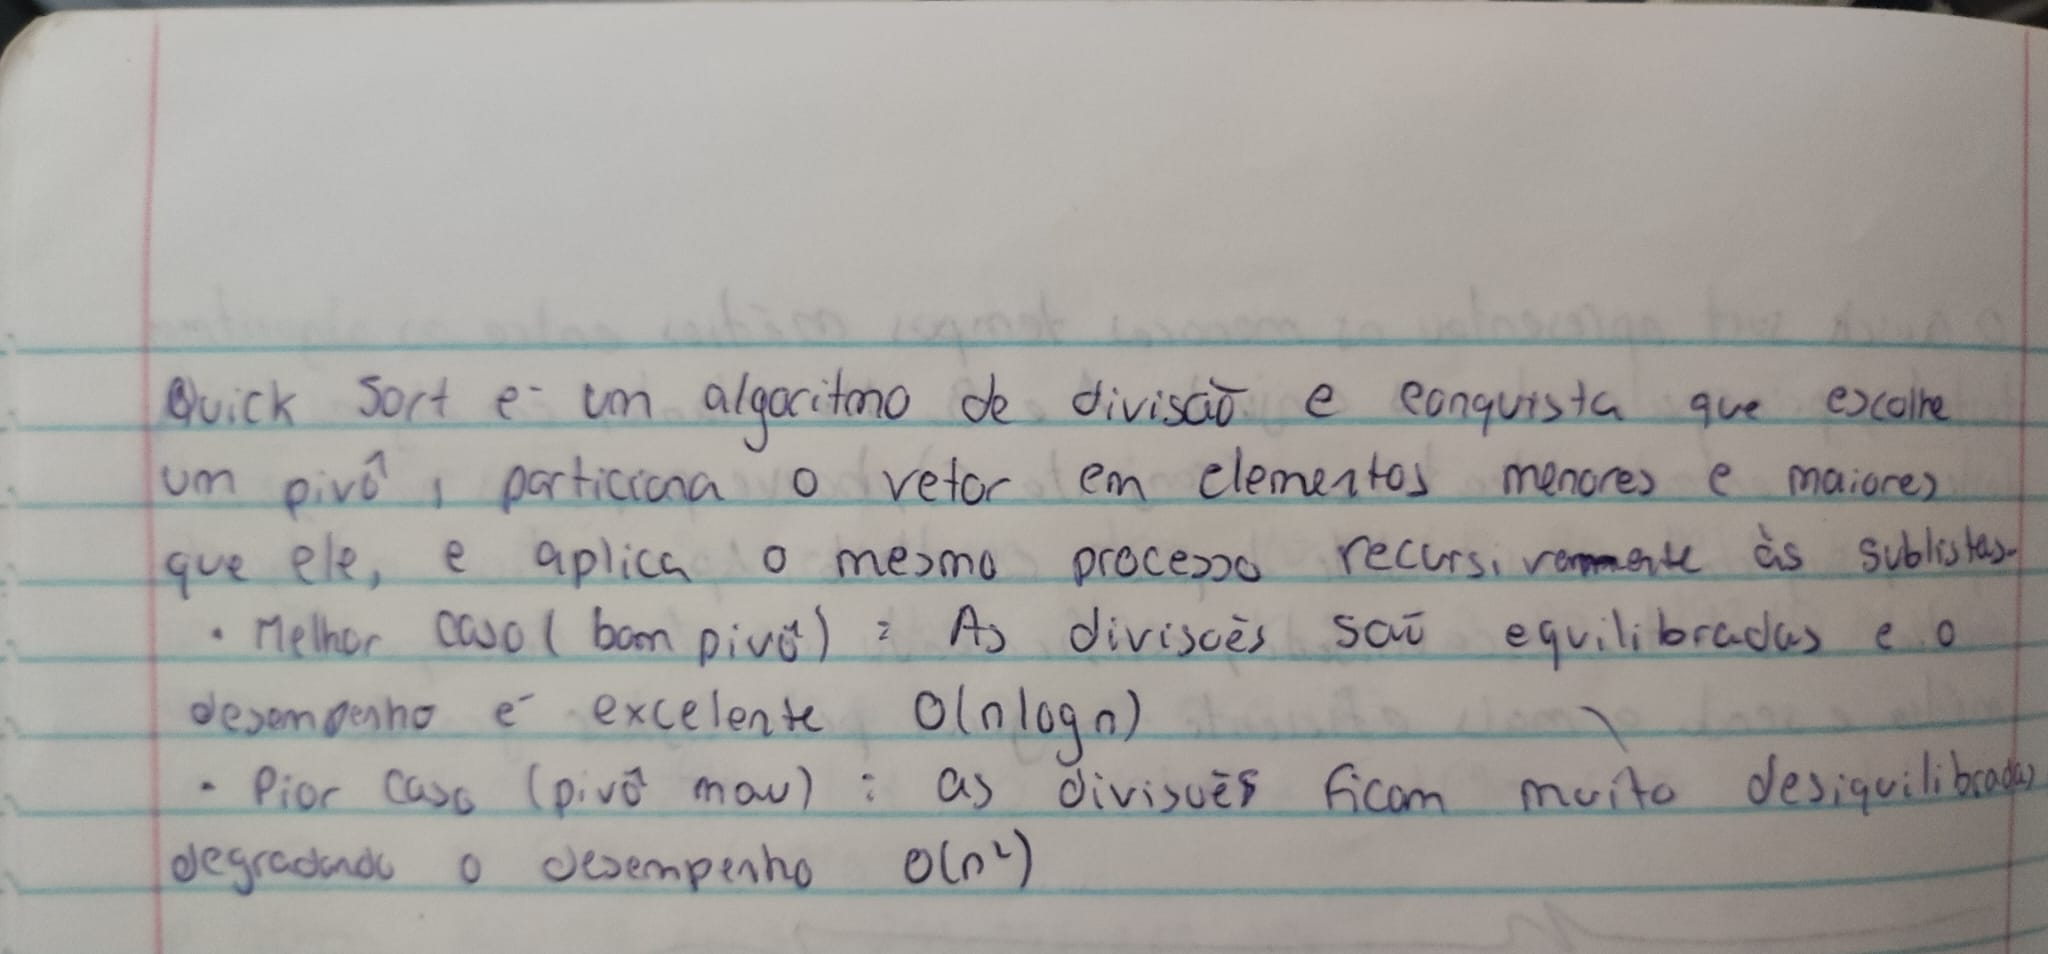 Quick Sort é um algoritmo de divisão e conquista que escolhe
um pivô, particiona o vetor em elementos menores e maiores
que ele, e aplica o mesmo processo recursivamente às sublistas.
• Melhor caso (bom pivô): As divisões são equilibradas e o
desempenho é excelente O(n log n)
• Pior caso (pivô mau): as divisões ficam muito desiquilibradas
degradando o desempenho O(n²)